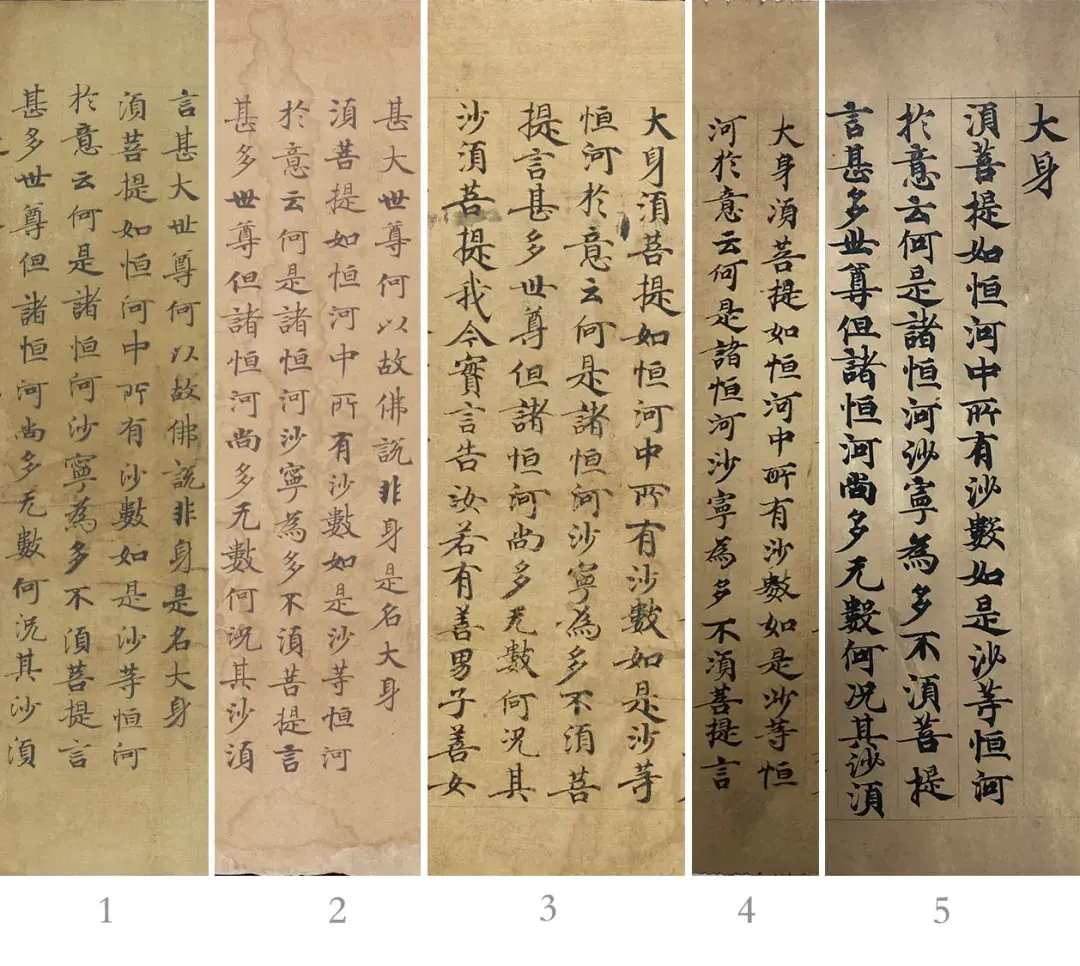 言甚大世尊何以故佛說非身是名大身
湏菩提如恒河中所有沙數如是沙等恒河
於意云何是諸恒河沙寧為多不湏菩提言
甚多世尊但諸恒河尚多无數何況其沙湏
1
甚大世尊何以故佛說非身是名大身
湏菩提如恒河中所有沙數如是沙等恒河
於意云何是諸恒河沙寧為多不湏菩提言
甚多世尊但諸恒河尚多无數何況其沙湏
2
大身湏菩提如恒河中所有沙數如是沙等
恒河於意云何是諸恒河沙寧為多不湏菩
提言甚多世尊但諸恒河尚多无數何況其
沙湏菩提我今實言告汝若有善男子善女
3
大身湏菩提如恒河中所有沙數如是沙等恒
河於意云何是諸恒河沙寧為多不湏菩提言
4
大身
湏菩提如恒河中所有沙數如是沙等恒河
於意云何是諸恒河沙寧為多不湏菩提
言甚多世尊但諸恒河尚多无數何況其沙湏
5